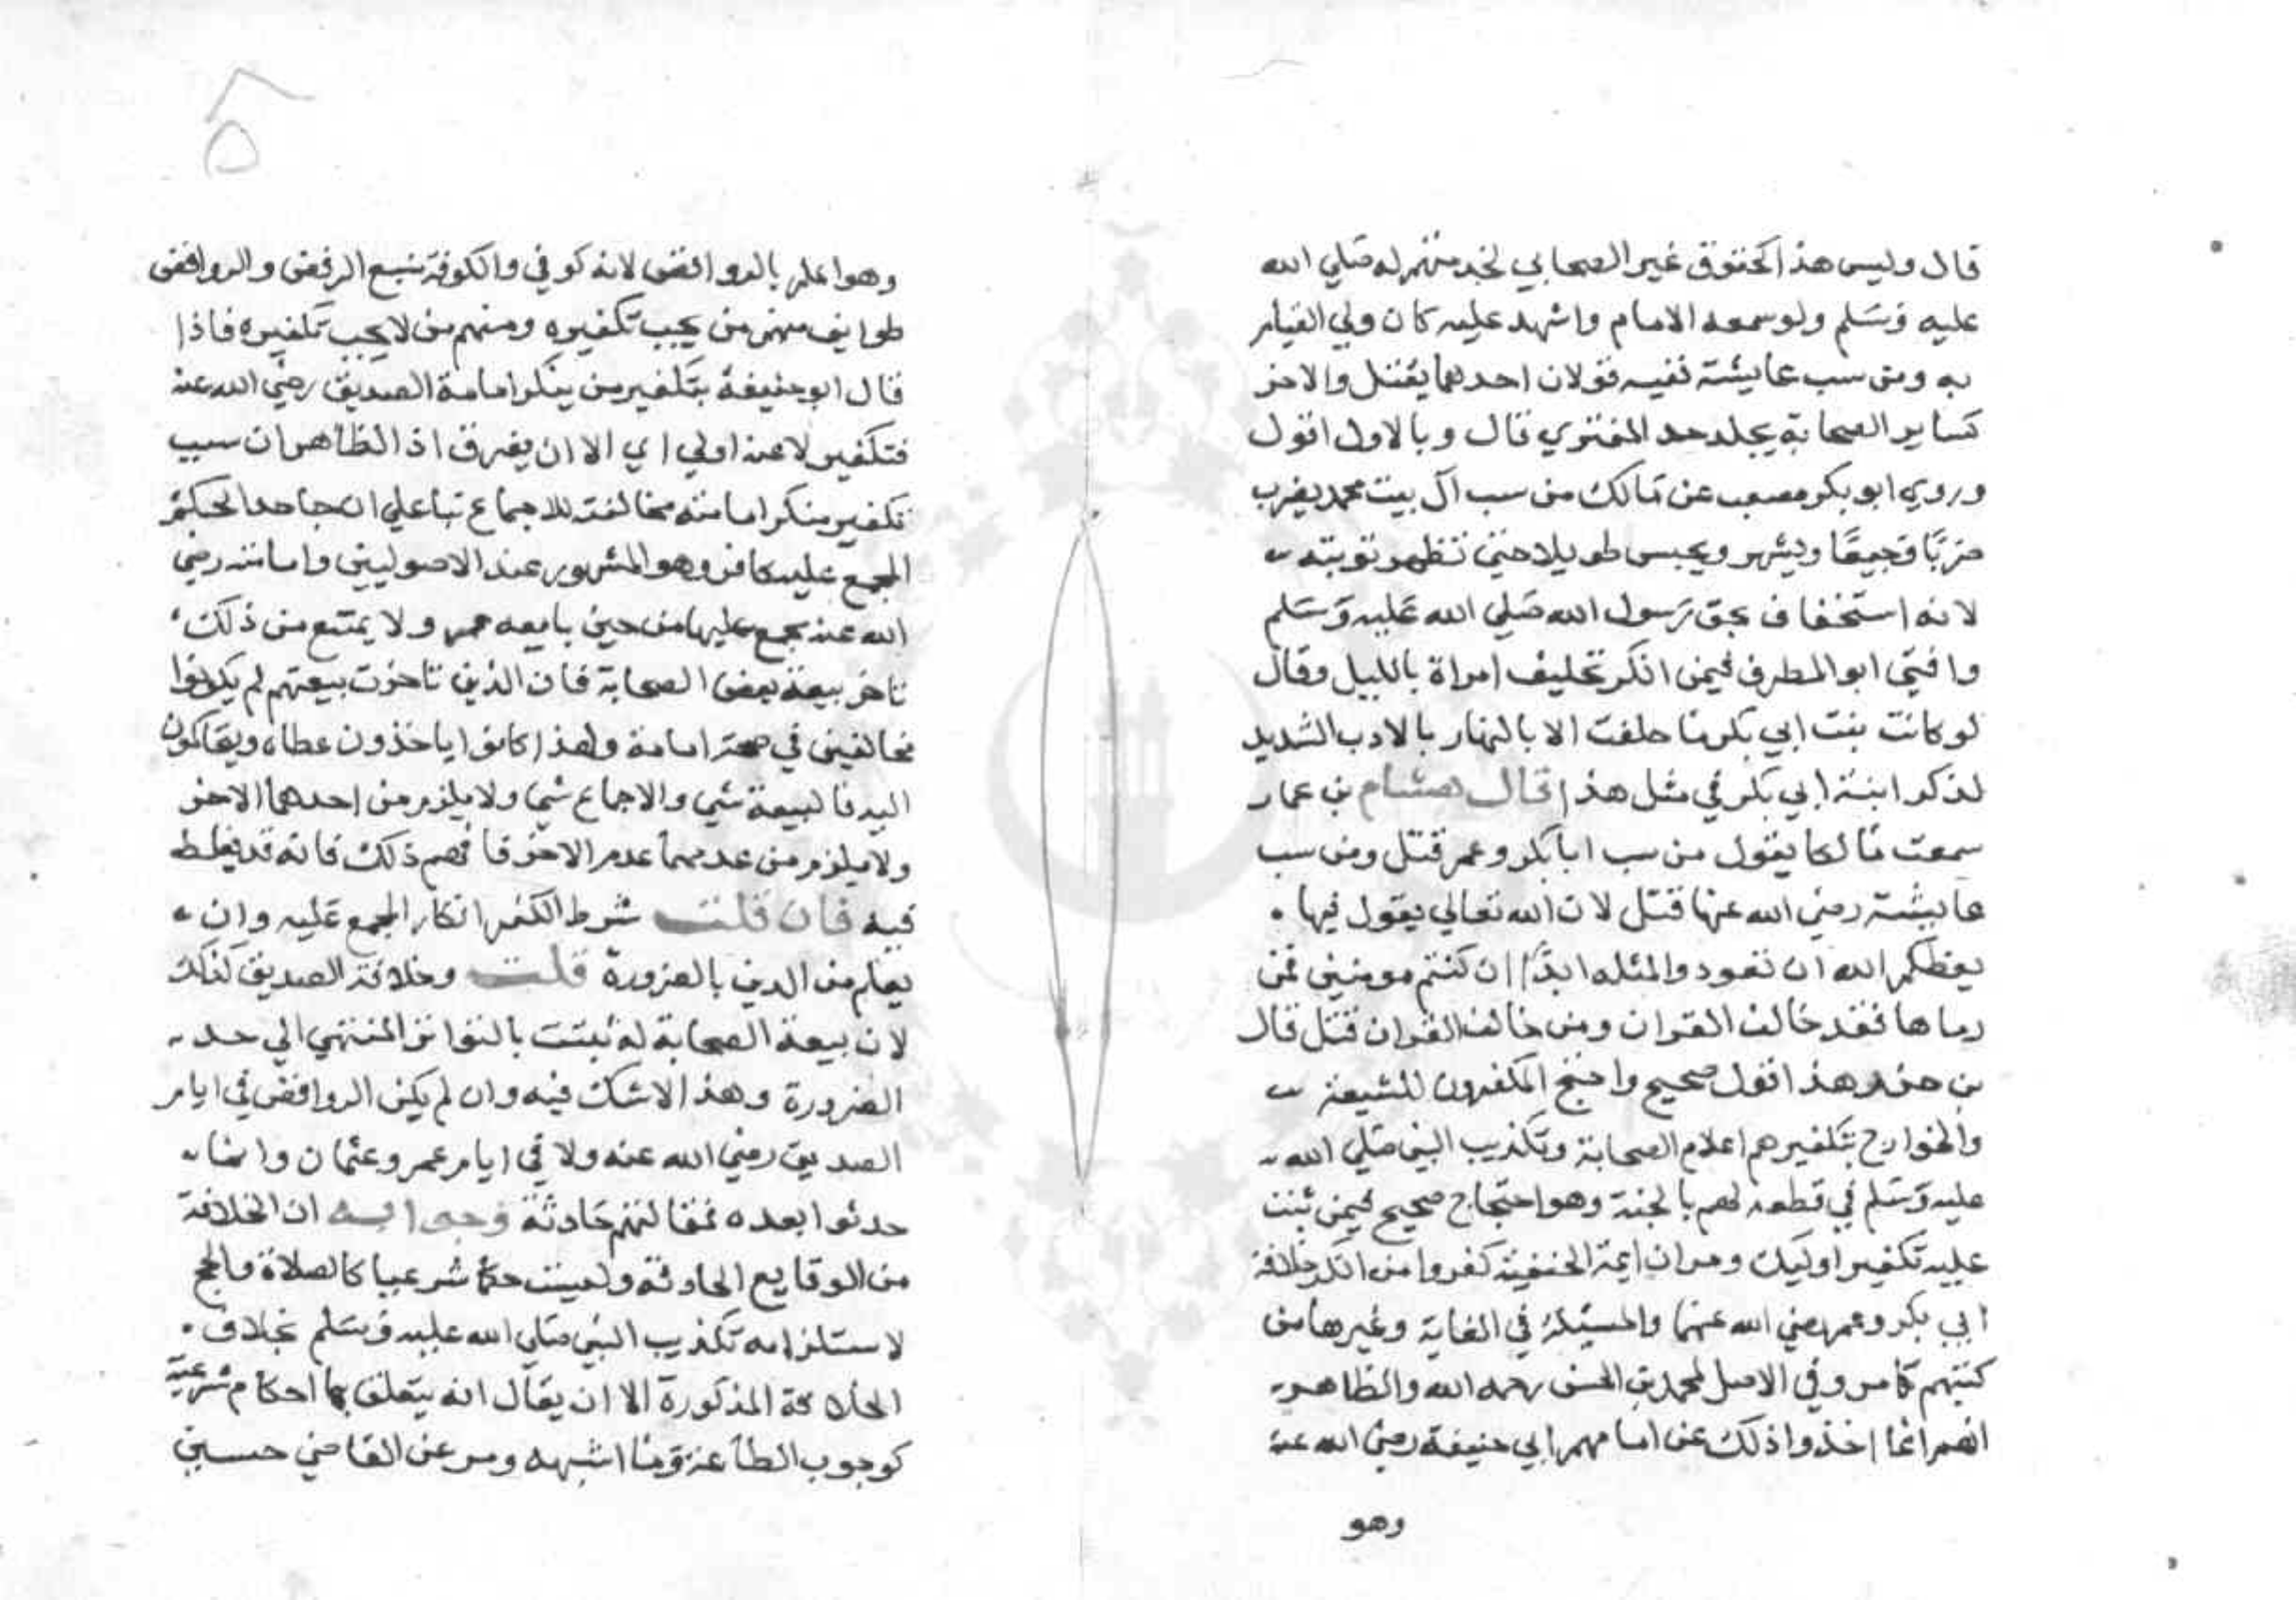 قال وليس هذا كحقوق غير الصحابي لخدمتهم له صلي الله
عليه وسلم ولو سمعه الامام واشهد عليه كان ولي القيام
به ومن سب عايشة ففيه قولان احدهما يقتل والاخر
كساير الصحابة يجلد حد المفتري قال وبالاول اقول
وروي ابو بكر مصعب عن مالك من سب آل بيت محمد يضرب
ضربًا وجيعًا ويشهر ويحبس طويلا حتي تظهر توبته
لانه استخفاف بحق رسول الله صلي الله عليه وسلم
وافتي ابو المطرف فيمن انكر تحليف امراة بالليل وقال
لو كانت بنت ابي بكر ما حلفت الا بالنهار بالادب الشديد
لذكر ابنة ابي بكر في مثل هذا قال هشام بن عمار
سمعت مالكا يقول من سب ابا بكر وعمر قتل ومن سب
عايشة رضي الله عنها قتل لان الله تعالي يقول فيها
يعظكم الله ان تعودوا لمثله ابدًا ان كنتم مومنين فمن
رماها فقد خالف القران ومن خالف القران قتل قال
بن حزم هذا قول صحيح واحتج المكفرون للشيعة
والخوارج بتكفيرهم اعلام الصحابة وتكذيب النبي صلي الله
عليه وسلم في قطعه لهم بالجنة وهو احتجاج صحيح فيمن ثبت
عليه تكفير اوليك ومر ان ايمة الحنفية كفروا من انكر خلافة
ابي بكر وعمر رضي الله عنهما والمسيلة في الغاية وغيرها من
كتبهم كما مر وفي الاصل لمحمد بن الحسن رحمه الله والظاهر
انهم انما اخذوا ذلك عن امامهم ابي حنيفة رضي الله عنه
وهو
وهو اعلم بالروافض لانه كوفي والكوفة منبع الرفض والروافض
طوايف منهم من يجب تكفيره ومنهم من لا يجب تكفيره فاذا
قال ابو حنيفة بتكفير من ينكر امامة الصديق رضي الله عنه
فتكفير لاعنه اولي اي الا ان يفرق اذ الظاهر ان سبب
تكفير منكر امامته مخالفته للاجماع بناعلي ان جاحد الحكم
المجمع عليه كافر وهو المشهور عند الاصوليين وامامته رضي
الله عنه مجمع عليها من حين بايعه عمر ولا يمنع من ذلك
تاخر بيعة بعض الصحابة فان الذين تاخرت بيعتهم لم يكونوا
مخالفين في صحة امامة ولهذا كانوا ياخذون عطاه ويتحاكمون
اليه فالبيعة شي والاجماع شي ولا يلزم من احدهما الاخر
ولا يلزم من عدم احدهما عدم الاخر فافهم ذلك فانه قد يغلط
فيه فان قلت شرط الكفر انكار المجمع عليه وان
يعلم من الدين بالضرورة قلت وخلافة الصديق كذلك
لان بيعة الصحابة له ثبتت بالتواتر المنتهي الي حد
الضرورة وهذا لاشك فيه وان لم يكن الروافض في ايام
الصديق رضي الله عنه ولا في ايام عمر وعثمان وانما
حدثوا بعده فمقالتهم حادثة وجوابه ان الخلافة
من الوقايع الحادثة وليست حكما شرعيا كالصلاة والحج
لاستلزامه تكذيب النبي صلي الله عليه وسلم بخلاف
الخلافة المذكورة الا ان يقال انه يتعلق بها احكام شرعية
كوجوب الطاعة وما اشبهه ومر عن القاضي حسين